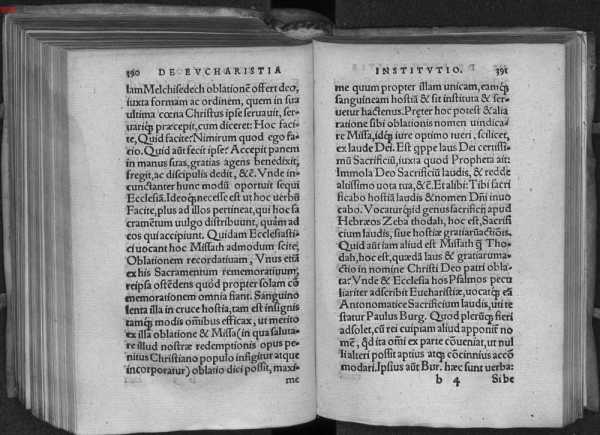 390 DE EVCHARISTIA
lam Melchisedech oblationē offert deo,
iuxta formam ac ordinem, quem in sua
ultima cœna Christus ipse seruauit, ser-
uariq́ præcepit, cum diceret: Hoc faci-
te, Quid facite: Nimirum quod ego fa-
cio. Quid aūt fecit ipse? Accepit panem
in manus suas, gratias agens benedixit,
fregit, ac discipulis dedit, &c. Vnde in-
cunctanter hunc modū oportuit sequi
Ecclesiā. Ideoq́; necesse est ut hoc uerbū
Facite, plus ad illos pertineat, qui hoc sa
cramētum uulgo distribuunt, quàm ad
eos qui accipiunt. Quidam Ecclesiasti-
ci uocant hoc Missath admodum scitè,
Oblationem recordatiuam, Vnus etiā
ex his Sacramentum rememoratiuum,
reipsa ostēdens quòd propter solam cō
memorationem omnia fiant. Sanguino
lenta illa in cruce hostia, tam est insignis
tamq́; modis omībus efficax, ut merito
ex illa oblatione & Missa (in qua saluta-
re illud nostræ redemptionis opus pe-
nitus Christiano populo infigitur atque
incorporatur) oblatio dici possit, maxi-
me
INSTITVTIO. 391
me quum propter illam unicam, eamq́;
sanguineam hostiā & sit instituta & ser-
uetur hactenus. Pręter hoc potest & alia
ratione sibi oblationis nomen uindica-
re Missa, idq́; iure optimo tueri, scilicet,
ex laude Dei. Est q̃ppe laus Dei certissi-
mū Sacrificiū, iuxta quod Propheta ait:
Immola Deo Sacrificiū laudis, & redde
altissimo uota tua, &c̄. Et alibi: Tibi sacri
ficabo hostiā laudis & nomen Dn̄i inuo
cabo. Vocaturq́; id genus sacrificij apud
Hebræos Zeba thodah, hoc est, Sacrifi
cium laudis, siue hostiæ gratiarūactiōis.
Quid aūt iam aliud est Missath q̄ Tho-
dah, hoc est, quædā laus & gratiaruma-
ctio in nomine Christi Deo patri obla-
ta? Vnde & Ecclesia hos Psalmos pecu
liariter adscribit Eucharistiæ, uocatq́; eā
Antonomaticè Sacrificium laudis, ut te
statur Paulus Burg. Quod plerūq́; fieri
adsolet, cū rei cuipiam aliud apponit̄ no
mē, q̃d ita om̄i ex parte cōueniat, ut nul
li alteri possit aptius atq́; cōcinnius accō
modari. Ipsius aūt Bur. hæc sunt uerba:
b 4 Si be